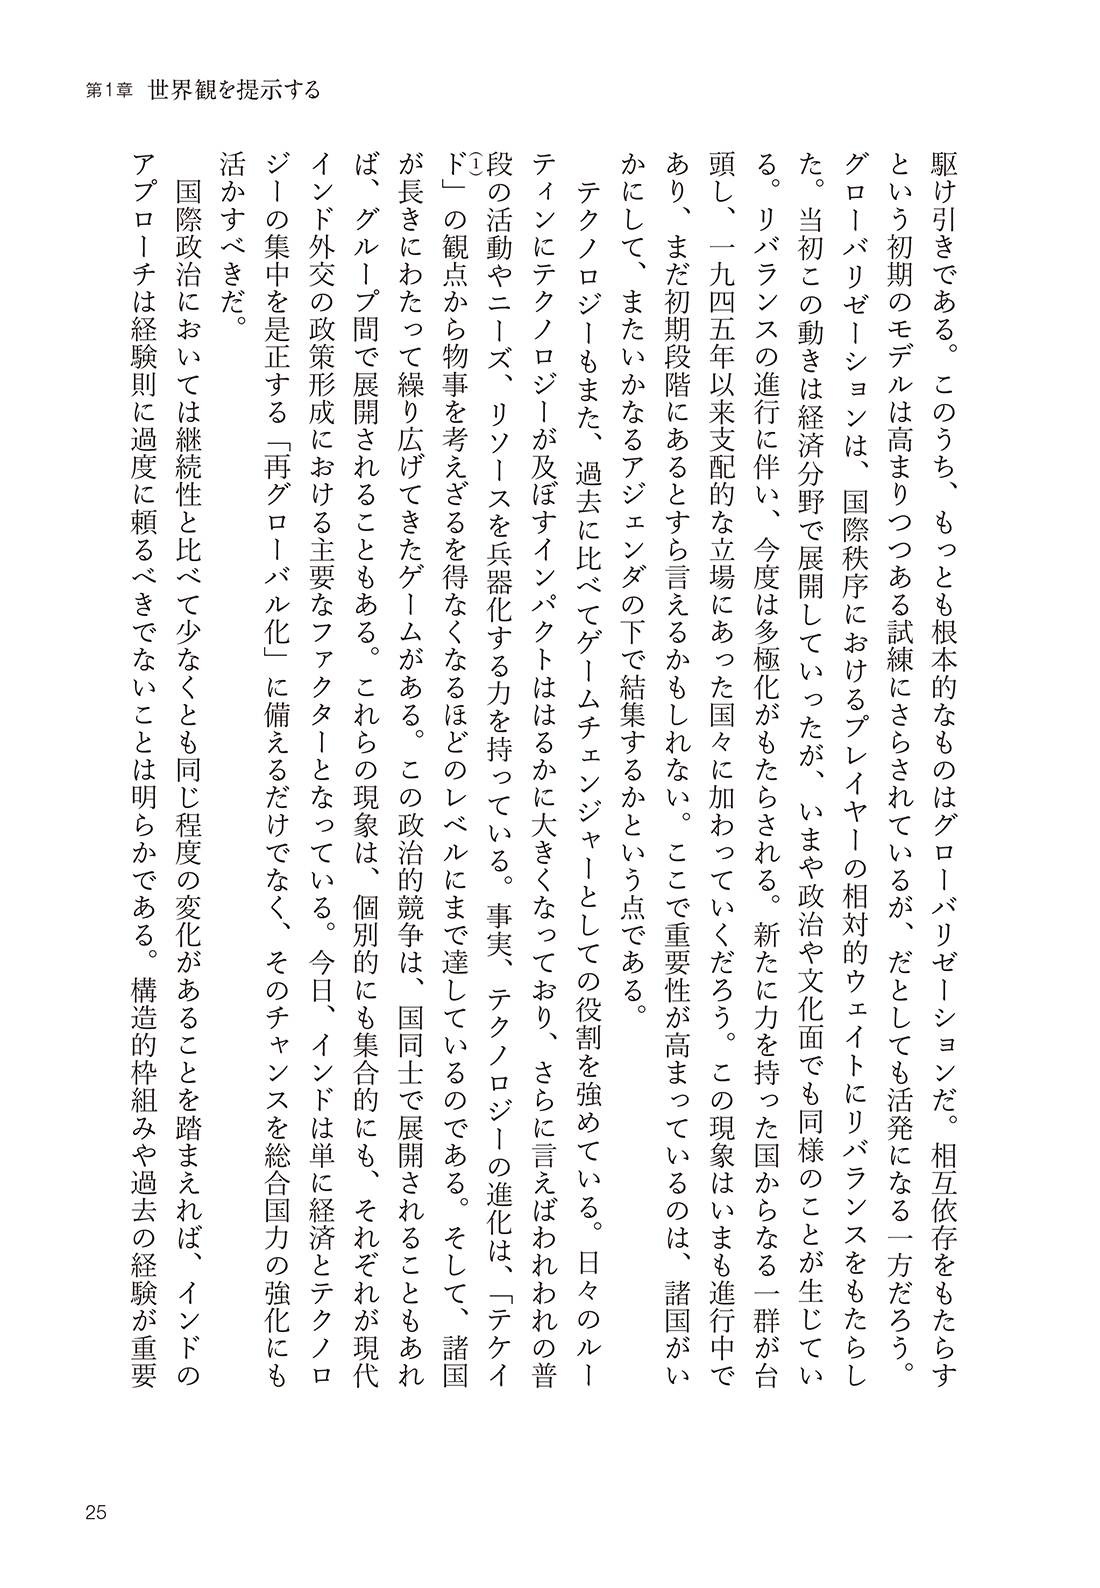 第1章 世界観を提示する
駆け引きである。このうち、もっとも根本的なものはグローバリゼーションだ。相互依存をもたらす
という初期のモデルは高まりつつある試練にさらされているが、だとしても活発になる一方だろう。
グローバリゼーションは、国際秩序におけるプレイヤーの相対的ウェイトにリバランスをもたらし
た。当初この動きは経済分野で展開していったが、いまや政治や文化面でも同様のことが生じてい
る。リバランスの進行に伴い、今度は多極化がもたらされる。新たに力を持った国からなる一群が台
頭し、一九四五年以来支配的な立場にあった国々に加わっていくだろう。この現象はいまも進行中で
あり、まだ初期段階にあるとすら言えるかもしれない。ここで重要性が高まっているのは、諸国がい
かにして、またいかなるアジェンダの下で結集するかという点である。
テクノロジーもまた、過去に比べてゲームチェンジャーとしての役割を強めている。日々のルー
ティンにテクノロジーが及ぼすインパクトははるかに大きくなっており、さらに言えばわれわれの普
段の活動やニーズ、リソースを兵器化する力を持っている。事実、テクノロジーの進化は、「テケイ
ド」(1)の観点から物事を考えざるを得なくなるほどのレベルにまで達しているのである。そして、諸国
が長きにわたって繰り広げてきたゲームがある。この政治的競争は、国同士で展開されることもあれ
ば、グループ間で展開されることもある。これらの現象は、個別的にも集合的にも、それぞれが現代
インド外交の政策形成における主要なファクターとなっている。今日、インドは単に経済とテクノロ
ジーの集中を是正する「再グローバル化」に備えるだけでなく、そのチャンスを総合国力の強化にも
活かすべきだ。
国際政治においては継続性と比べて少なくとも同じ程度の変化があることを踏まえれば、インドの
アプローチは経験則に過度に頼るべきでないことは明らかである。構造的枠組みや過去の経験が重要
25